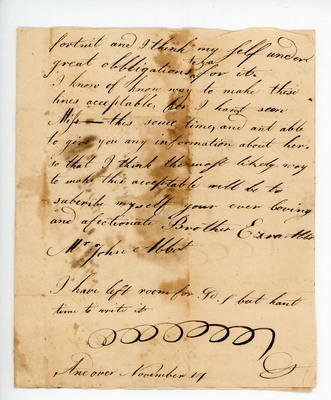 fortnit and I think my self under
great obbligations to ya for it.
I know of know way to make these
lines acceptable, for I hant seen
Miss — this some time, and ant able
to give you any information about her.
so that I think the most likely way
to make this acceptable will be to
subcribe myself your ever loving
and afectionate Brother Ezra Abbt
Mr John Abbot
I have left room for Pd. S but hant
time to write it
Andover November 14